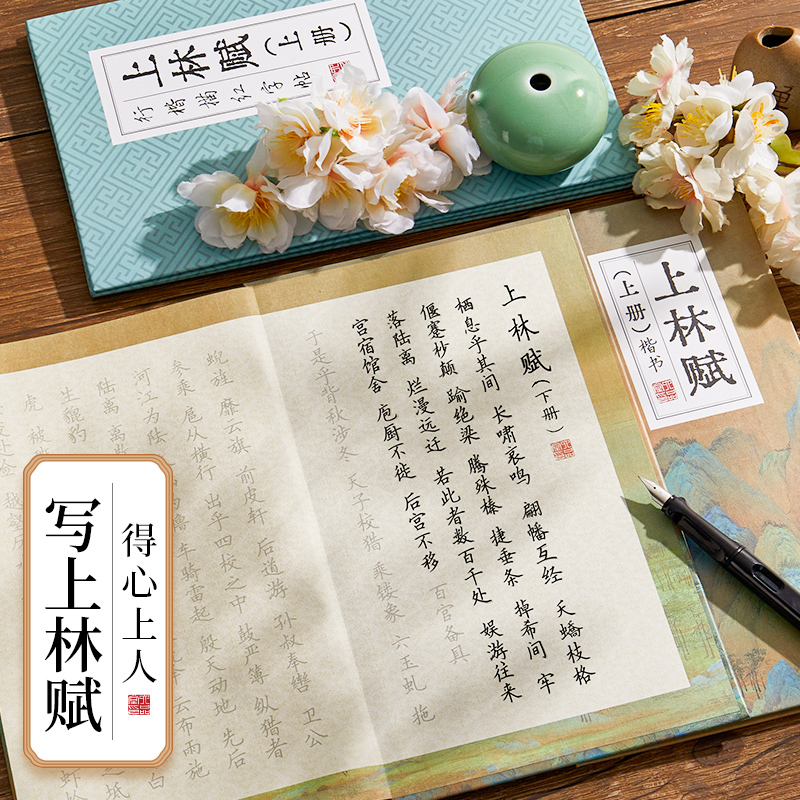 上林赋(上册)
行楷描红字帖
上林赋
(上册)楷书
上林赋(下册)
栖息乎其间 长啸哀鸣 翩幡互经 夭蟜枝格
偃蹇杪颠 踰绝梁 腾殊榛 捷垂条 掉希间 牢
落陆离 烂漫远迁 若此者数百千处 娱游往来
宫宿馆舍 庖厨不徙 后宫不移 百官备具
于是乎背秋涉冬 天子校猎 乘镂象 六玉虬 拖
蜺旌 靡云旗 前皮轩 后道游 孙叔奉辔 卫公
参乘 扈从横行 出乎四校之中 鼓严簿 纵猎者
河江为阹 橹 车骑雷起 殷天动地 先后
陆离 离 云布雨施
生貔豹 白
虎 被 之坻
得心上人
写上林赋